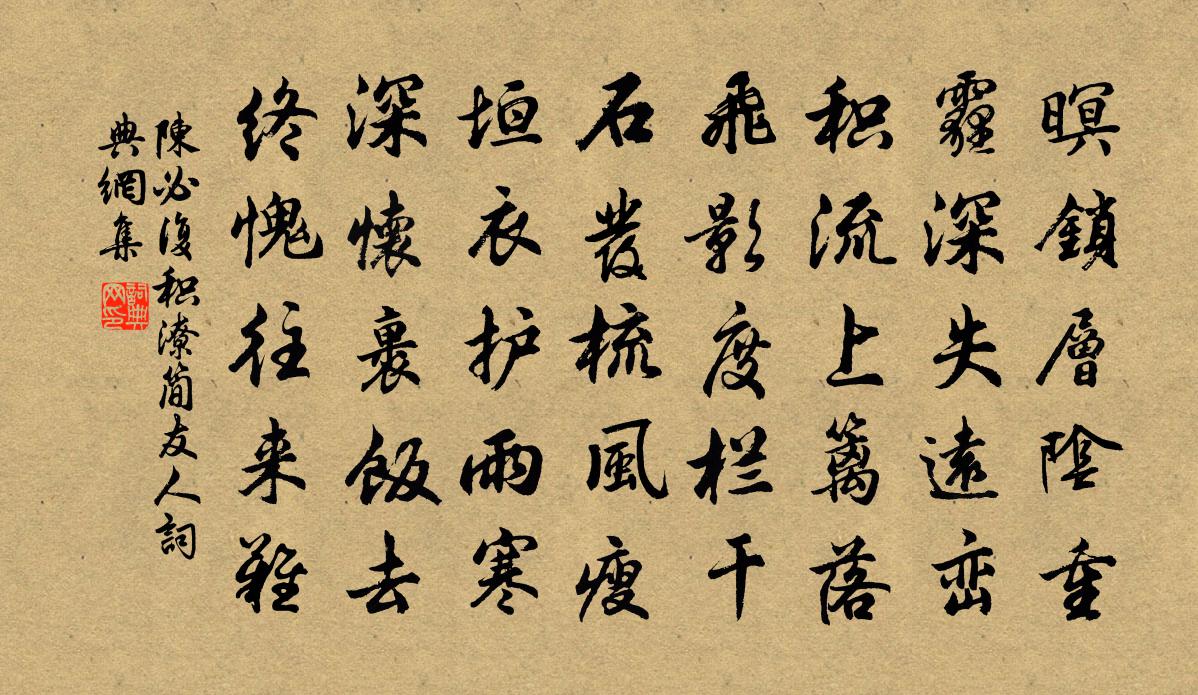 暝鎖層陰重
霾深失遠巒
积流上篱落
飛影度栏干
石發梳風瘦
垣衣护雨寒
深懷裹飯去
終愧往来難
陳必復积潦簡友人詞
典網集
詞典网印